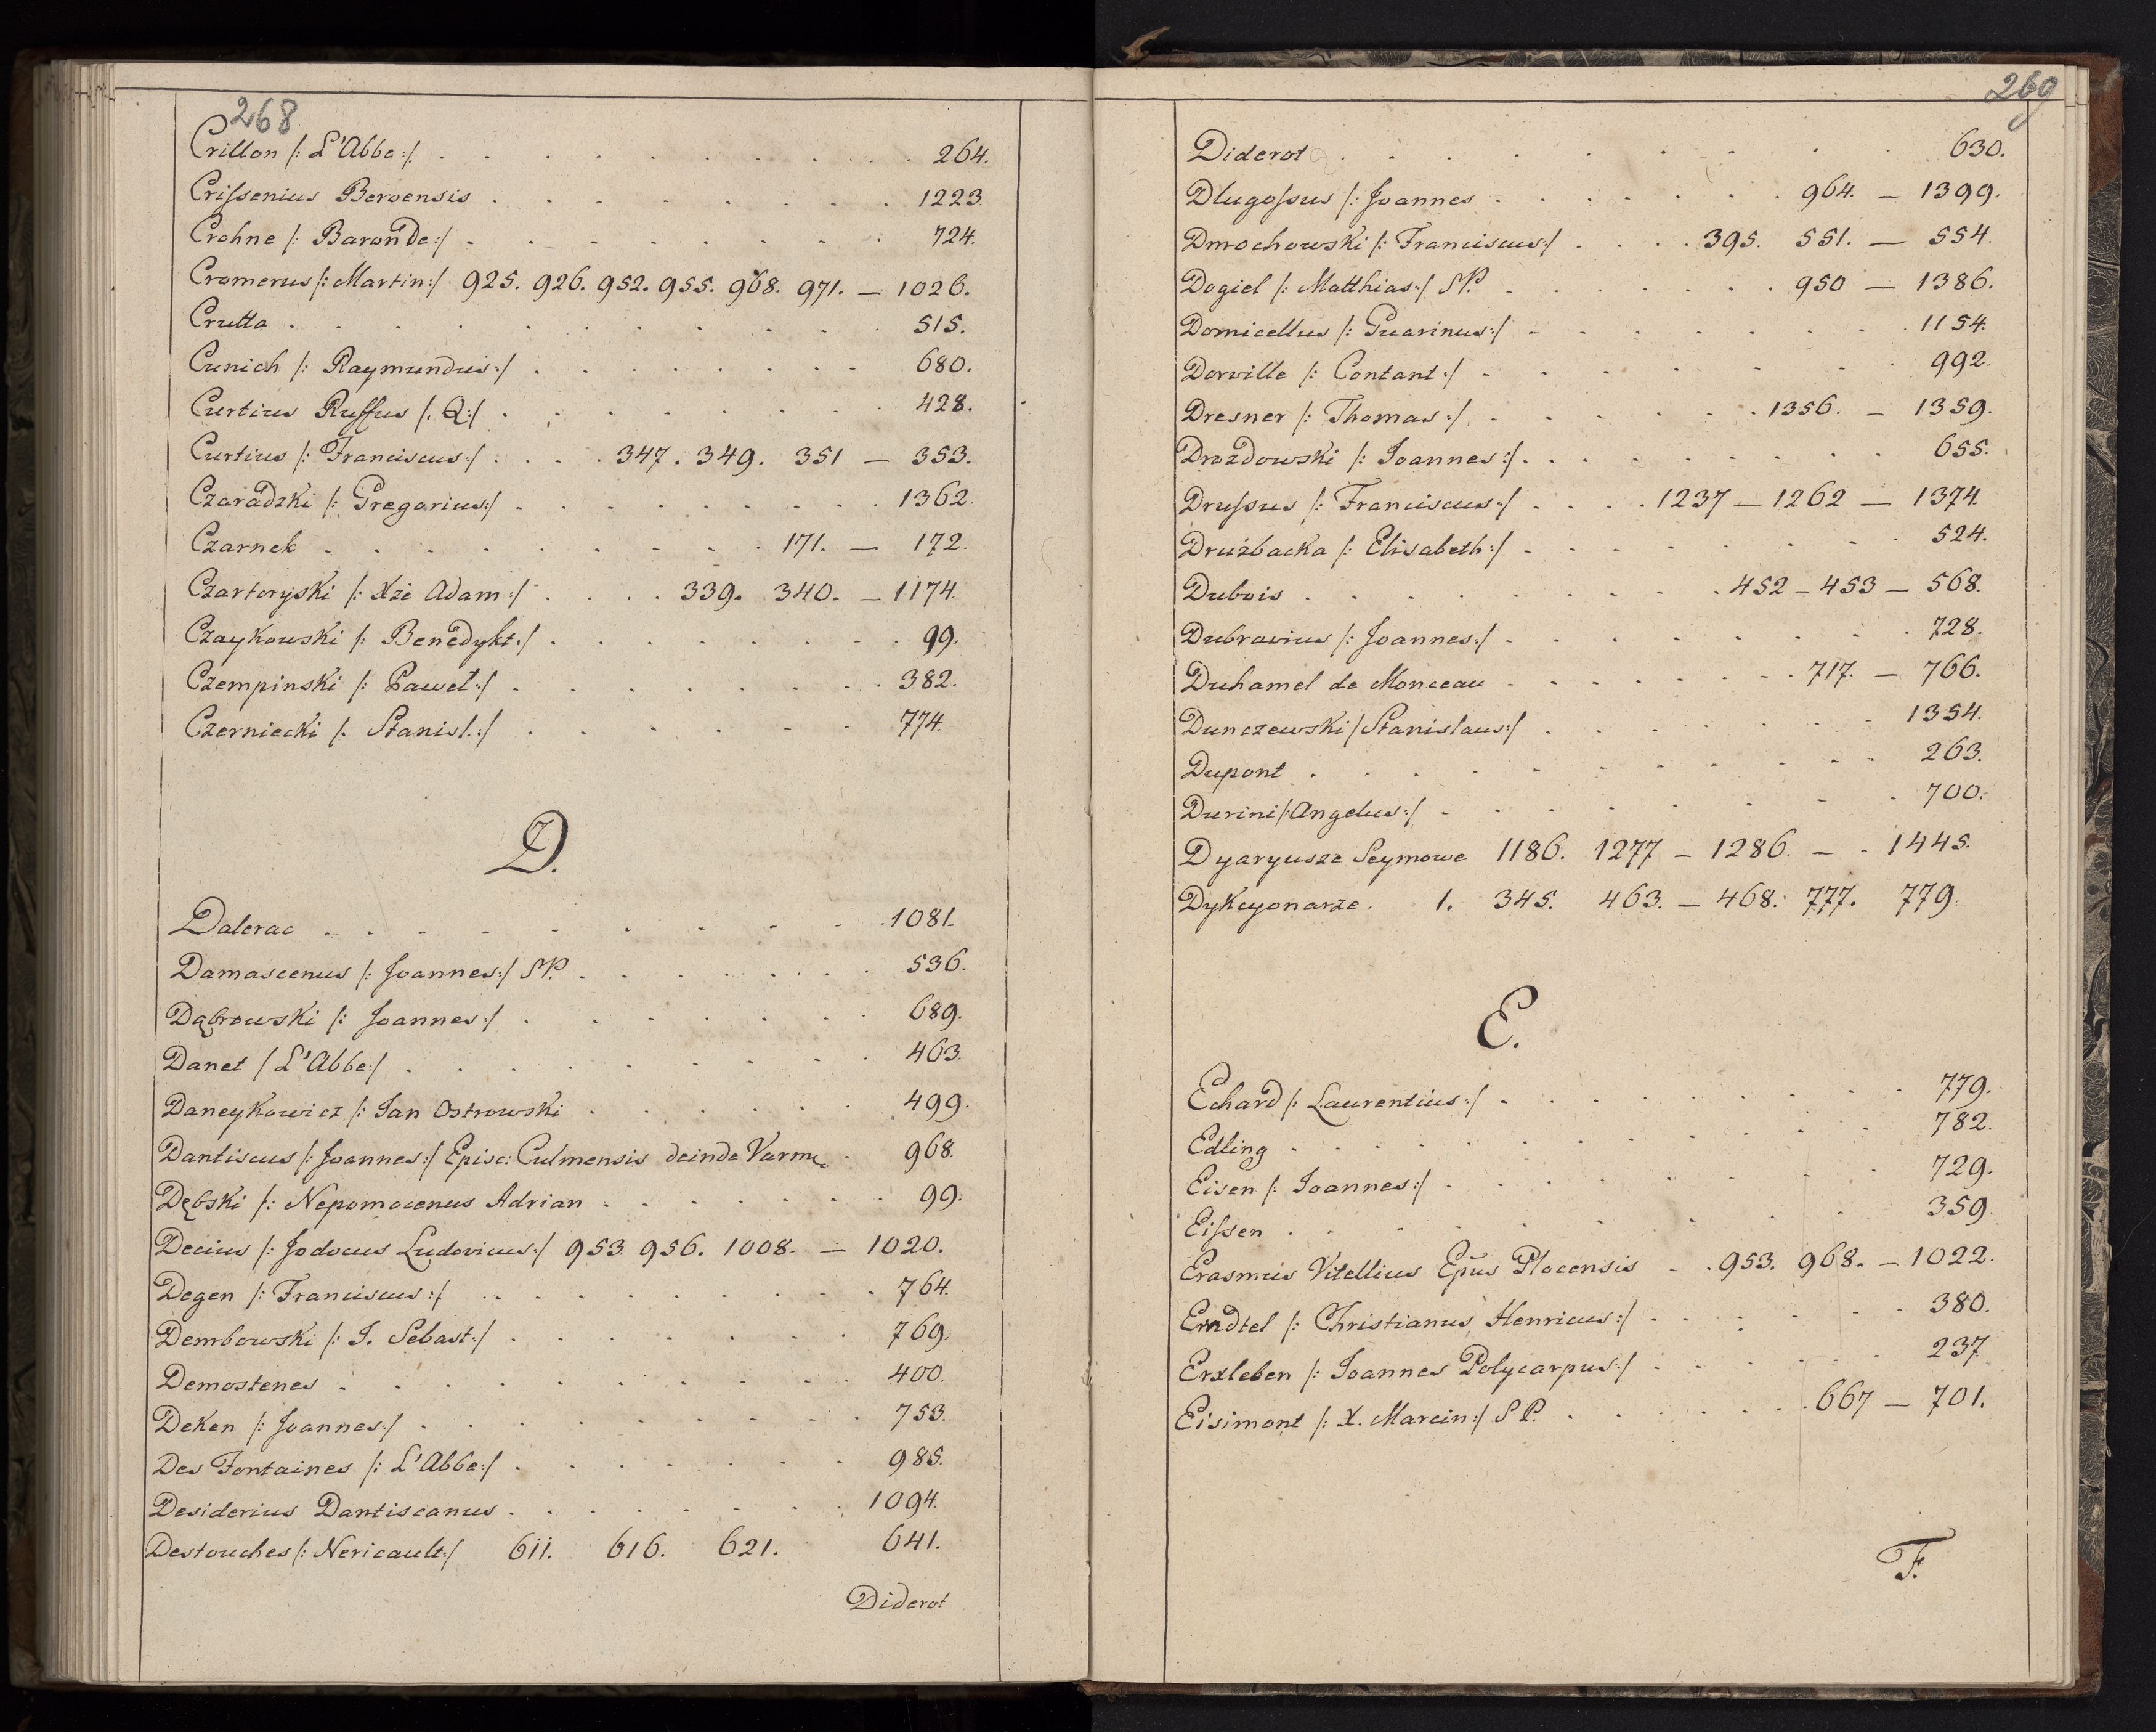 268
Crillon /: L'Abbe :/ . . . . . . . . . . 264.
Crissenius Beroensis . . . . . . . . 1223.
Crohne /: Baron De :/ . . . . . . . . 724.
Cromerus /: Martin :/ 925. 926. 952. 955. 968. 971. — 1026.
Crutta . . . . . . . . . . . 515.
Cunich /: Raymundus :/ . . . . . . . 680.
Curtius Ruffus /. Q :/ . . . . . . . . 428.
Curtius /: Franciscus :/ . . . . 347. 349. 351 — 353.
Czaradzki /: Gregorius :/ . . . . . . . . 1362.
Czarnek . . . . . . . . . 171. — 172.
Czartoryski /: Xże Adam :/ . . . . 339. 340. — 1174.
Czaykowski /: Benedykt :/ . . . . . . . . 99.
Czempinski /: Paweł :/ . . . . . . . . 382.
Czerniecki /. Stanisl. :/ . . . . . . 774.
D.
Dalerac . . . . . . . . . . 1081.
Damascenus /: Joannes :/ SP. . . . . . . . 536.
Dąbrowski /: Joannes :/ . . . . . . . 689.
Danet / L'Abbe :/ . . . . . . . . . 463.
Daneykowicz /: Jan Ostrowski . . . . . . 499.
Dantiscus /: Joannes :/ Episc: Culmensis deinde Varm. . 968.
Dębski /: Nepomocenus Adrian . . . . . . . 99.
Decius /: Jodocus Ludovicus :/ 953. 956. 1008. — 1020.
Degen /: Franciscus :/ . . . . . . . . . 764.
Dembowski /: I. Sebast :/ . . . . . . . 769.
Demostenes . . . . . . . . . . 400.
Deken /: Joannes :/ . . . . . . . . . 753.
Des Fontaines /: L'Abbe :/ . . . . . . . 985.
Desiderius Dantiscanus . . . . . . . . 1094.
Destouches /: Nericault :/ 611. 616. 621. 641.
Diderot
269
Diderot . . . . . . . . . . . 630.
Dlugossus /: Joannes . . . . . . . 964. — 1399.
Dmochowski /: Franciscus :/ . . . . 395. 551. — 554.
Dogiel /: Matthias :/ SP. . . . . . . . 950 — 1386.
Domicellus /: Guarinus :/ . . . . . . . . 1154.
Dorville /: Contant :/ . . . . . . . . 992.
Dresner /: Thomas :/ . . . . . . . 1356. — 1359.
Drozdowski /: Joannes :/ . . . . . . . . . 655.
Drussus /: Franciscus :/ . . . . 1237 — 1262 — 1374.
Drużbacka /: Elisabeth :/ . . . . . . . . 524.
Dubois . . . . . . . . . . 452 — 453 — 568.
Dubravius /: Joannes :/ . . . . . . . . 728.
Duhamel de Monceau . . . . . . . . 717. — 766.
Dunczewski / Stanislaus :/ . . . . . . . 1354.
Dupont . . . . . . . . . . . 263.
Durini /: Angelus :/ . . . . . . . . . 700.
Dyaryusze Seymowe 1186. 1277 — 1286. — . 1445.
Dykcyonarze . 1. 345. 463. — 468. 777. 779.
E.
Echard /: Laurentius :/ . . . . . . . . 779.
Edling . . . . . . . . . . . . 782.
Eisen /: Joannes :/ . . . . . . . . 729.
Eissen . . . . . . . . . . . 359.
Erasmus Vitellius Epũs Plocensis . . 953. 968. — 1022.
Erndtel /: Christianus Henricus :/ . . . . . . 380.
Erxleben /: Joannes Polycarpus :/ . . . . . . 237
Eisimont /: X. Marcin :/ S P. . . . . . . 667 — 701.
F.